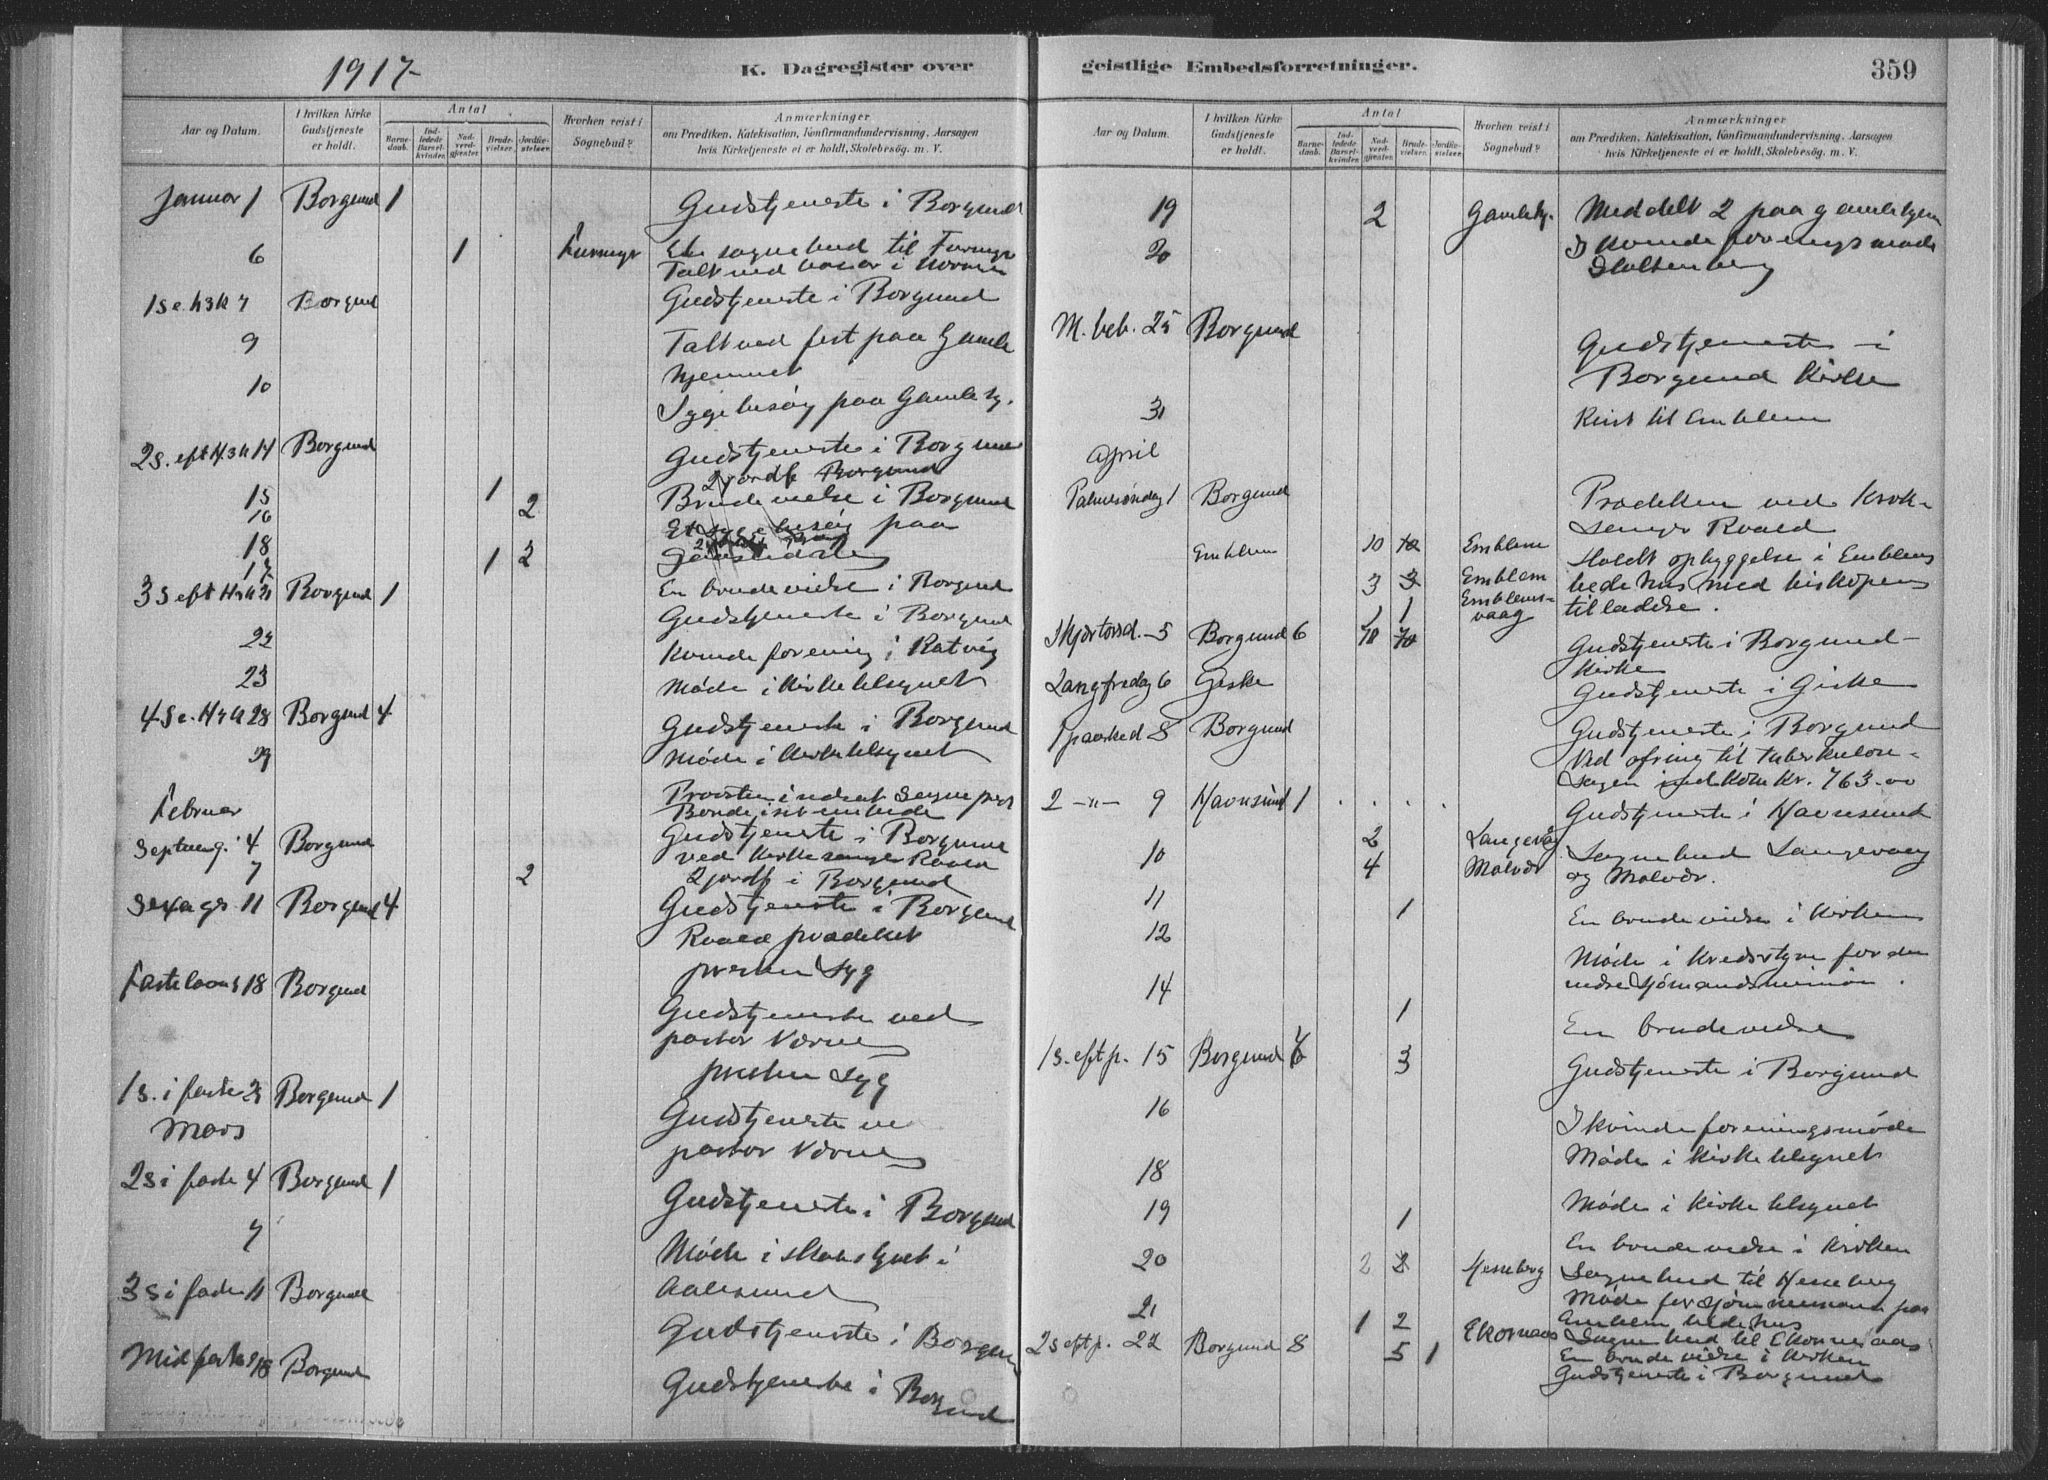 1917-
K. Dagregister over
Aar og Datum.
I hvilken Kirke Gudstjeneste er holdt.
Antal
Barne-daab.
Ind-ledede Barsel-kvinder.
Nad-verd-gjester.
Brude-vielser.
Jordfæ-stelser.
Hvorhen reist i Sognebud?
Anmærkninger
om Prædiken, Katekisation, Konfirmandundervisning, Aarsagen
hvis Kirketjeneste ei er holdt, Skolebesøg. m. V.
Januar 1 Borgund 1 Gudstjeneste i Borgund
6 1 Et sognebud til
Talt ved basar i
1 s e. h3k 7 Borgund Gudstjeneste i Borgund
9 Talt ved fest paa Gamle
hjemmet
10 Sygebesøg paa Gamleh.
2 s. eft H3k 14 Borgund Gudstjeneste i Borgund
2 jordf Borgund
15 1 Brudevielse i Borgund
16 2
Et sygebesøg paa
18 1 2
17
En brudevielse i Borgund
3 s eft 21 Borgund 1 Gudstjeneste i Borgund
22 Kvindeforening i Ratvig
23 Møde i Kirketilsynet
4 s e. 28 Borgund 4 Gudstjeneste i Borgund
29 Møde i Kirketilsynet
Februar Provsten indsat Sogneprest
Bonde i sit embede
Septuag. 4 Borgund Gudstjeneste i Borgund
ved Kirkesanger Roald
7 2 2 jordf i Borgund
Sexages 11 Borgund 4 Gudstjeneste i Borgund
Roald prædiket
presten syg
Fastelavns 18 Borgund
Gudstjeneste ved
pastor Nærve
presten syg
1 s. i faste 25 Borgund 1
Gudstjeneste ve
Mars
pastor Nærve
2 s i faste 4 Borgund 1
Gudstjeneste i Borgund
7 Møde i skolestyret i
Aalesund
3 s i faste 11 Borgund
Gudstjeneste i Borgund
Midfaste 18 Borgund
Gudstjeneste i Borgund
geistlige Embedsforretninger.
359
Aar og Datum.
I hvilken Kirke Gudstjeneste er holdt.
Antal
Barne-daab.
Ind-ledede Barsel-kvinder.
Nad-verd-gjester.
Brude-vielser.
Jordfæ-stelser.
Hvorhen reist i Sognebud?
Anmærkninger
om Prædiken, Katekisation, Konfirmandundervisning, Aarsagen
hvis Kirketjeneste ei er holdt, Skolebesøg. m. V.
19 2 Gamlehj. Meddelt 2 paa gamlehjem
20 I Kvindeforeningsmøde
Slottenberg
M. beb. 25 Borgund Gudstjeneste i
Borgund Kirke
31 Reist til Emblem
April
Palmesøndag 1 Borgund Prædiken ved Kirke-
sanger Roald
Emblem 10 10 Emblem Holdt opbyggelse i Emblem
3 3 Emblem bedehus med biskopens
1 1 Emblems-vaag tilladelse.
Skjærtorsd. 5 Borgund 6 70 70 Gudstjeneste i Borgund
Kirke
Langfredag 6 Giske Gudstjeneste i Giske
1 paasked 8 Borgund Gudstjeneste i Borgund
Ved ofring til tuberkulose-
sagen indkom Kr. 763.00
2 -"- 9 Havnsund 1 Gudstjeneste i Havnsund
2 Langevåg
10 4 Molvær Sognebud Langevaag
og Molvær.
11 1 En brudevielse i Kirken
12 Møde i Kredsstyre for den
indre Sjømandsmission.
14 1 En brudevielse
1 s. eft p. 15 Borgund 6 3 Gudstjeneste i Borgund
16 I kvindeforeningsmøde
Møde i Kirketilsynet
18 Møde i Kirketilsynet
19 1 En brudevielse i Kirken
20 2 2 Hesseberg Sognebud til Hesseberg
21 Møde for sjømmemand paa
1 2 Ekornæs Emblem bedehus
2 s eft p. 22 Borgund 8 5 1 Sognebud til Ekornæs
En brudevielse i Kirken
Gudstjeneste i Borgund